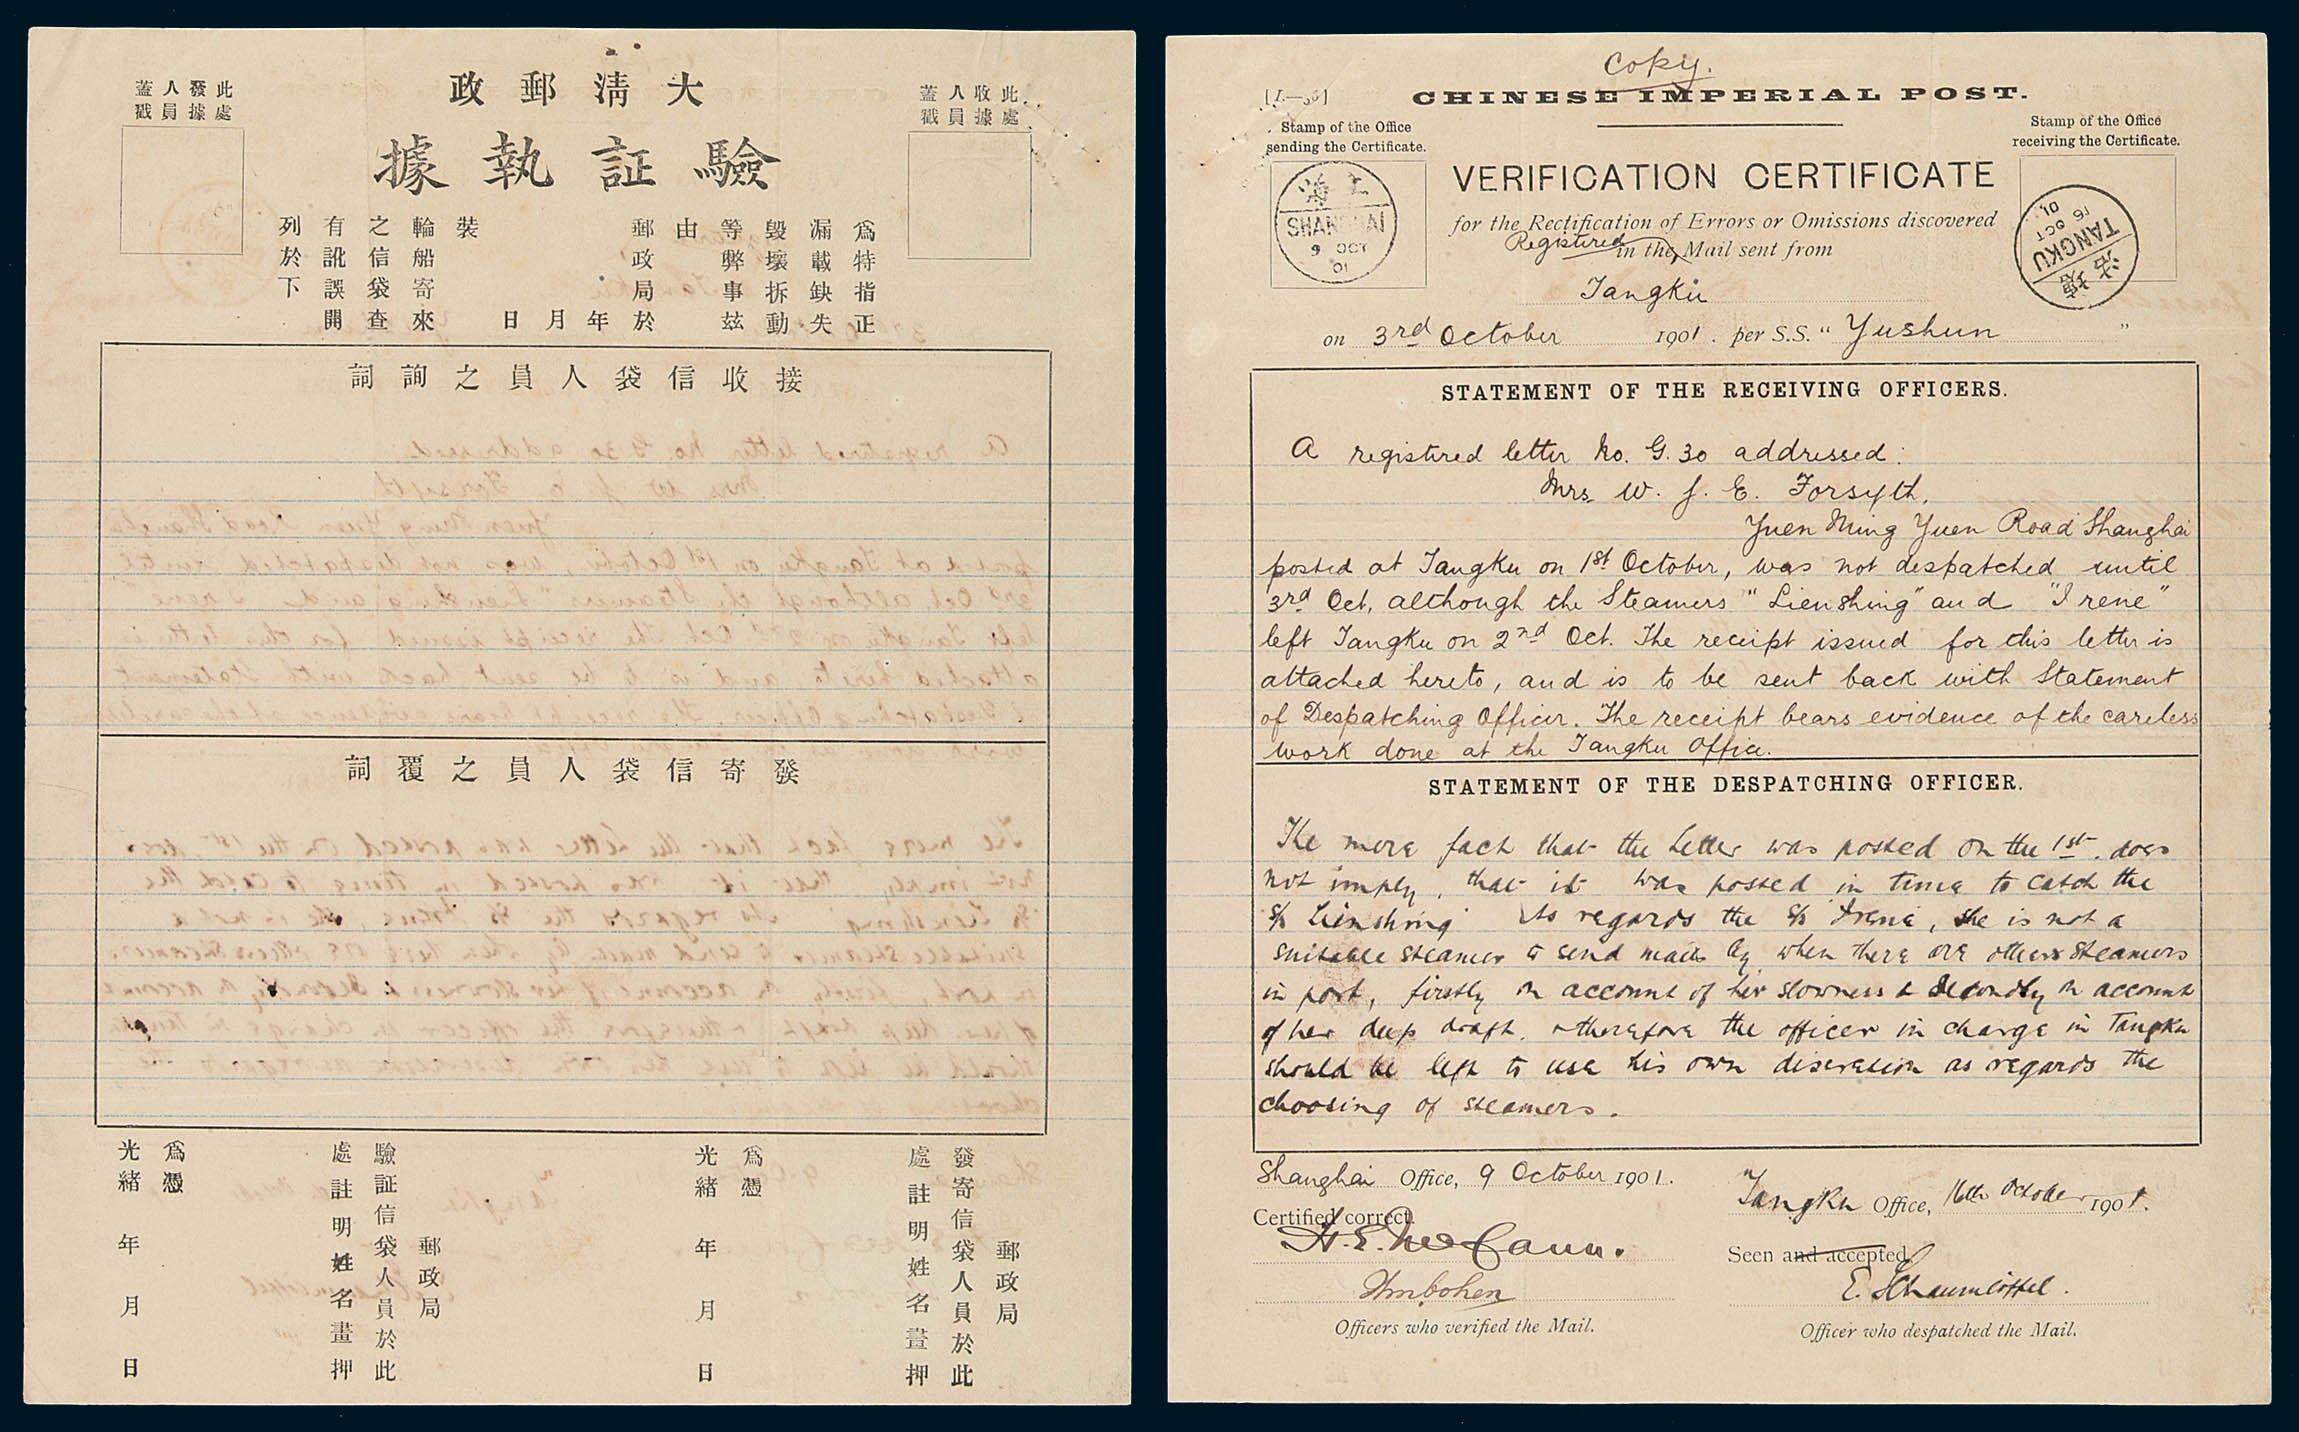 大清郵政
驗証執據
此處收據人員蓋戳
此處發據人員蓋戳
為特指正
漏載鈌失
毀壞拆動
等弊事茲
由
郵政局於
年
月
日
裝
輪船寄來
之信袋查
有訛誤開
列於下
接收信袋人員之詢詞
發寄信袋人員之覆詞
郵政局
發寄信袋人員於此
處註明姓名畫押
為憑
光緒 年 月 日
郵政局
驗証信袋人員於此
處註明姓名畫押
為憑
光緒 年 月 日
Copy.
CHINESE IMPERIAL POST.
Stamp of the Office
sending the Certificate.
Stamp of the Office
receiving the Certificate.
上海
SHANGHAI
9 OCT
01
塘沽
TANGKU
16 OCT
01
VERIFICATION CERTIFICATE
for the Rectification of Errors or Omissions discovered
Registered
in the Mail sent from
Tangku
on 3rd October 1901. per S.S. "Yushun"
STATEMENT OF THE RECEIVING OFFICERS.
A registered letter No. G. 30 addressed:
Mrs. W. J. E. Forsyth,
Yuen Ming Yuen Road Shanghai
posted at Tangku on 1st October, was not despatched until
3rd Oct, although the Steamers "Lienshing" and "Irene"
left Tangku on 2nd Oct. The receipt issued for this letter is
attached hereto, and is to be sent back with Statement
of Despatching Officer. The receipt bears evidence of the careless
work done at the Tangku Office.
STATEMENT OF THE DESPATCHING OFFICER.
The mere fact that the Letter was posted on the 1st. does
not imply, that it was posted in time to catch the
S/S Lienshing. As regards the S/S Irene, she is not a
suitable steamer to send mails by when there are others steamers
in port, firstly on account of her slowness & secondly on account
of her deep draft. & therefore the officer in charge in Tangku
should be left to use his own discretion as regards the
choosing of steamers.
Shanghai Office, 9 October 1901.
Certified correct.
H. E. McCann.
Wm. Cohen
Officers who verified the Mail.
Tangku Office, 16th October 1901.
Seen and accepted
E. Schaumlöffel.
Officer who despatched the Mail.